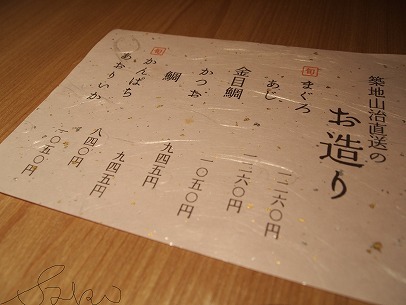 築地山治直送の
お造り
旬
まぐろ 一二六〇円
あじ 一二六〇円
金目鯛 一〇五〇円
かつお 九四五円
鯛 九四五円
旬
かんぱち 八四〇円
あおりいか 一〇五〇円